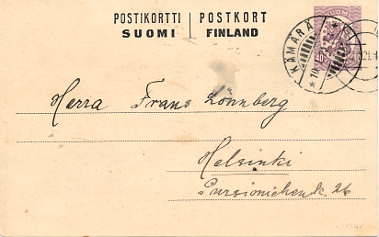 POSTIKORTTI | POSTKORT
SUOMI | FINLAND
SUOMI
KÄMÄRÄ
Herra Frans Lönnberg
Helsinki
26